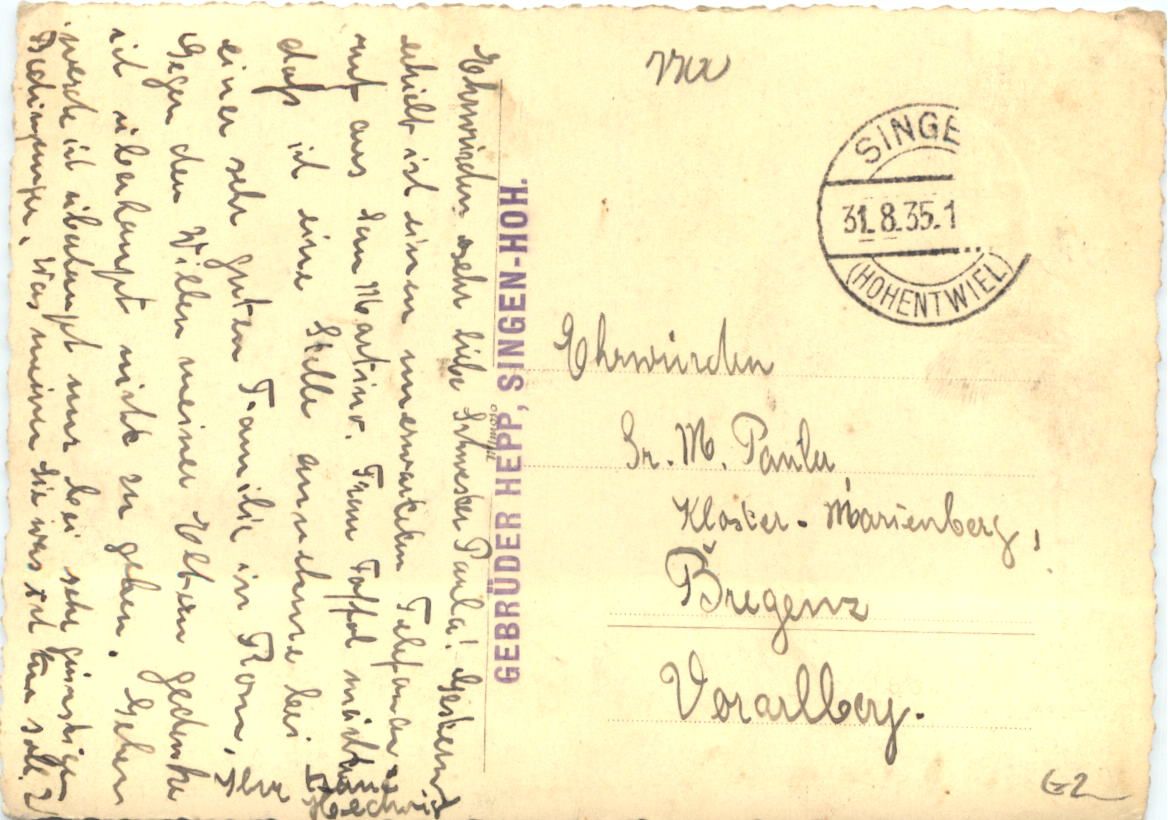 Ehrwürden sehr liebe Schwester Paula! Gestern
erhielt ich einen unerwarteten Telefonan-
ruf aus San Martino. Frau Toffol möchte
daß ich eine Stelle annehme bei
einer sehr guten Familie in Rom,
Gegen den Willen meiner Eltern gedenke
ich überhaupt nicht zu gehen. Gehen
werde ich überhaupt nur bei sehr günstigen
Bedingungen. Was meinen Sie was ich tun soll?
Ihre
Hedwig
GEBRÜDER HEPP, SINGEN-HOH.
SINGE
31.8.35.1
(HOHENTWIEL)
Ehrwürden
Sr. M. Paula
Kloster-Marienberg,
Bregenz
Vorarlberg.
G2